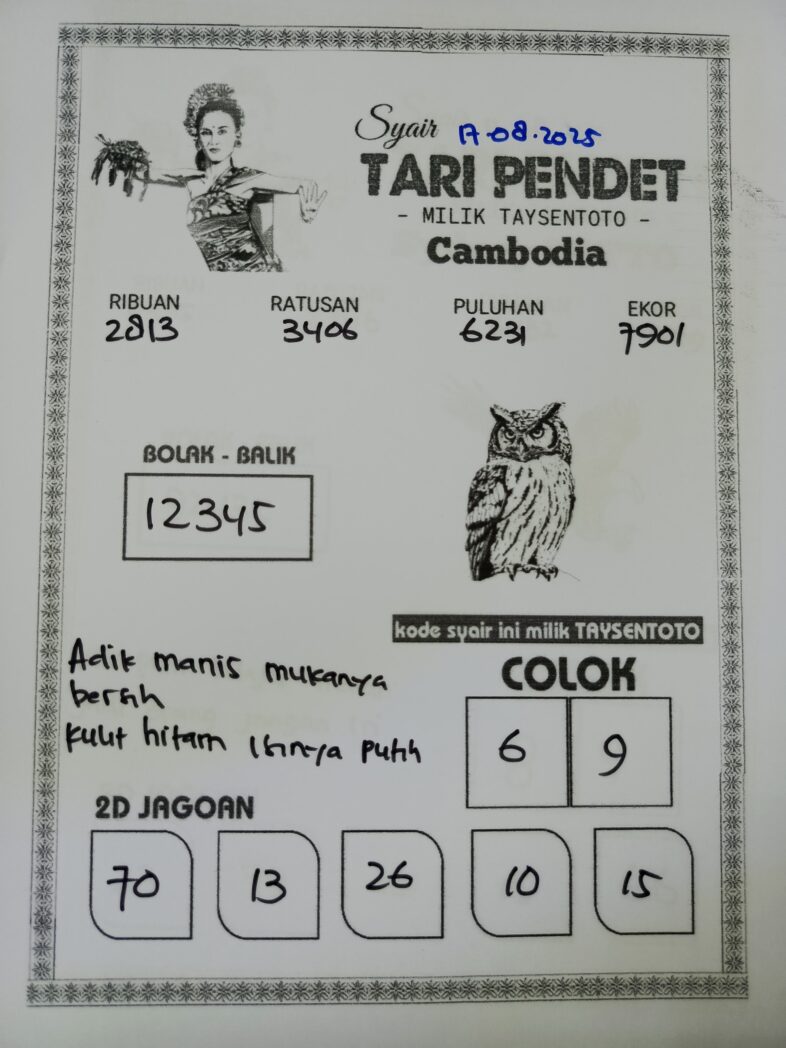 Syair 17-08-2025
TARI PENDET
- MILIK TAYSENTOTO -
Cambodia
RIBUAN RATUSAN PULUHAN EKOR
2813 3406 6231 7901
BOLAK - BALIK
12345
kode syair ini milik TAYSENTOTO
Adik manis mukanya
bersih
kulit hitam isinya putih
COLOK
6 9
2D JAGOAN
70 13 26 10 15